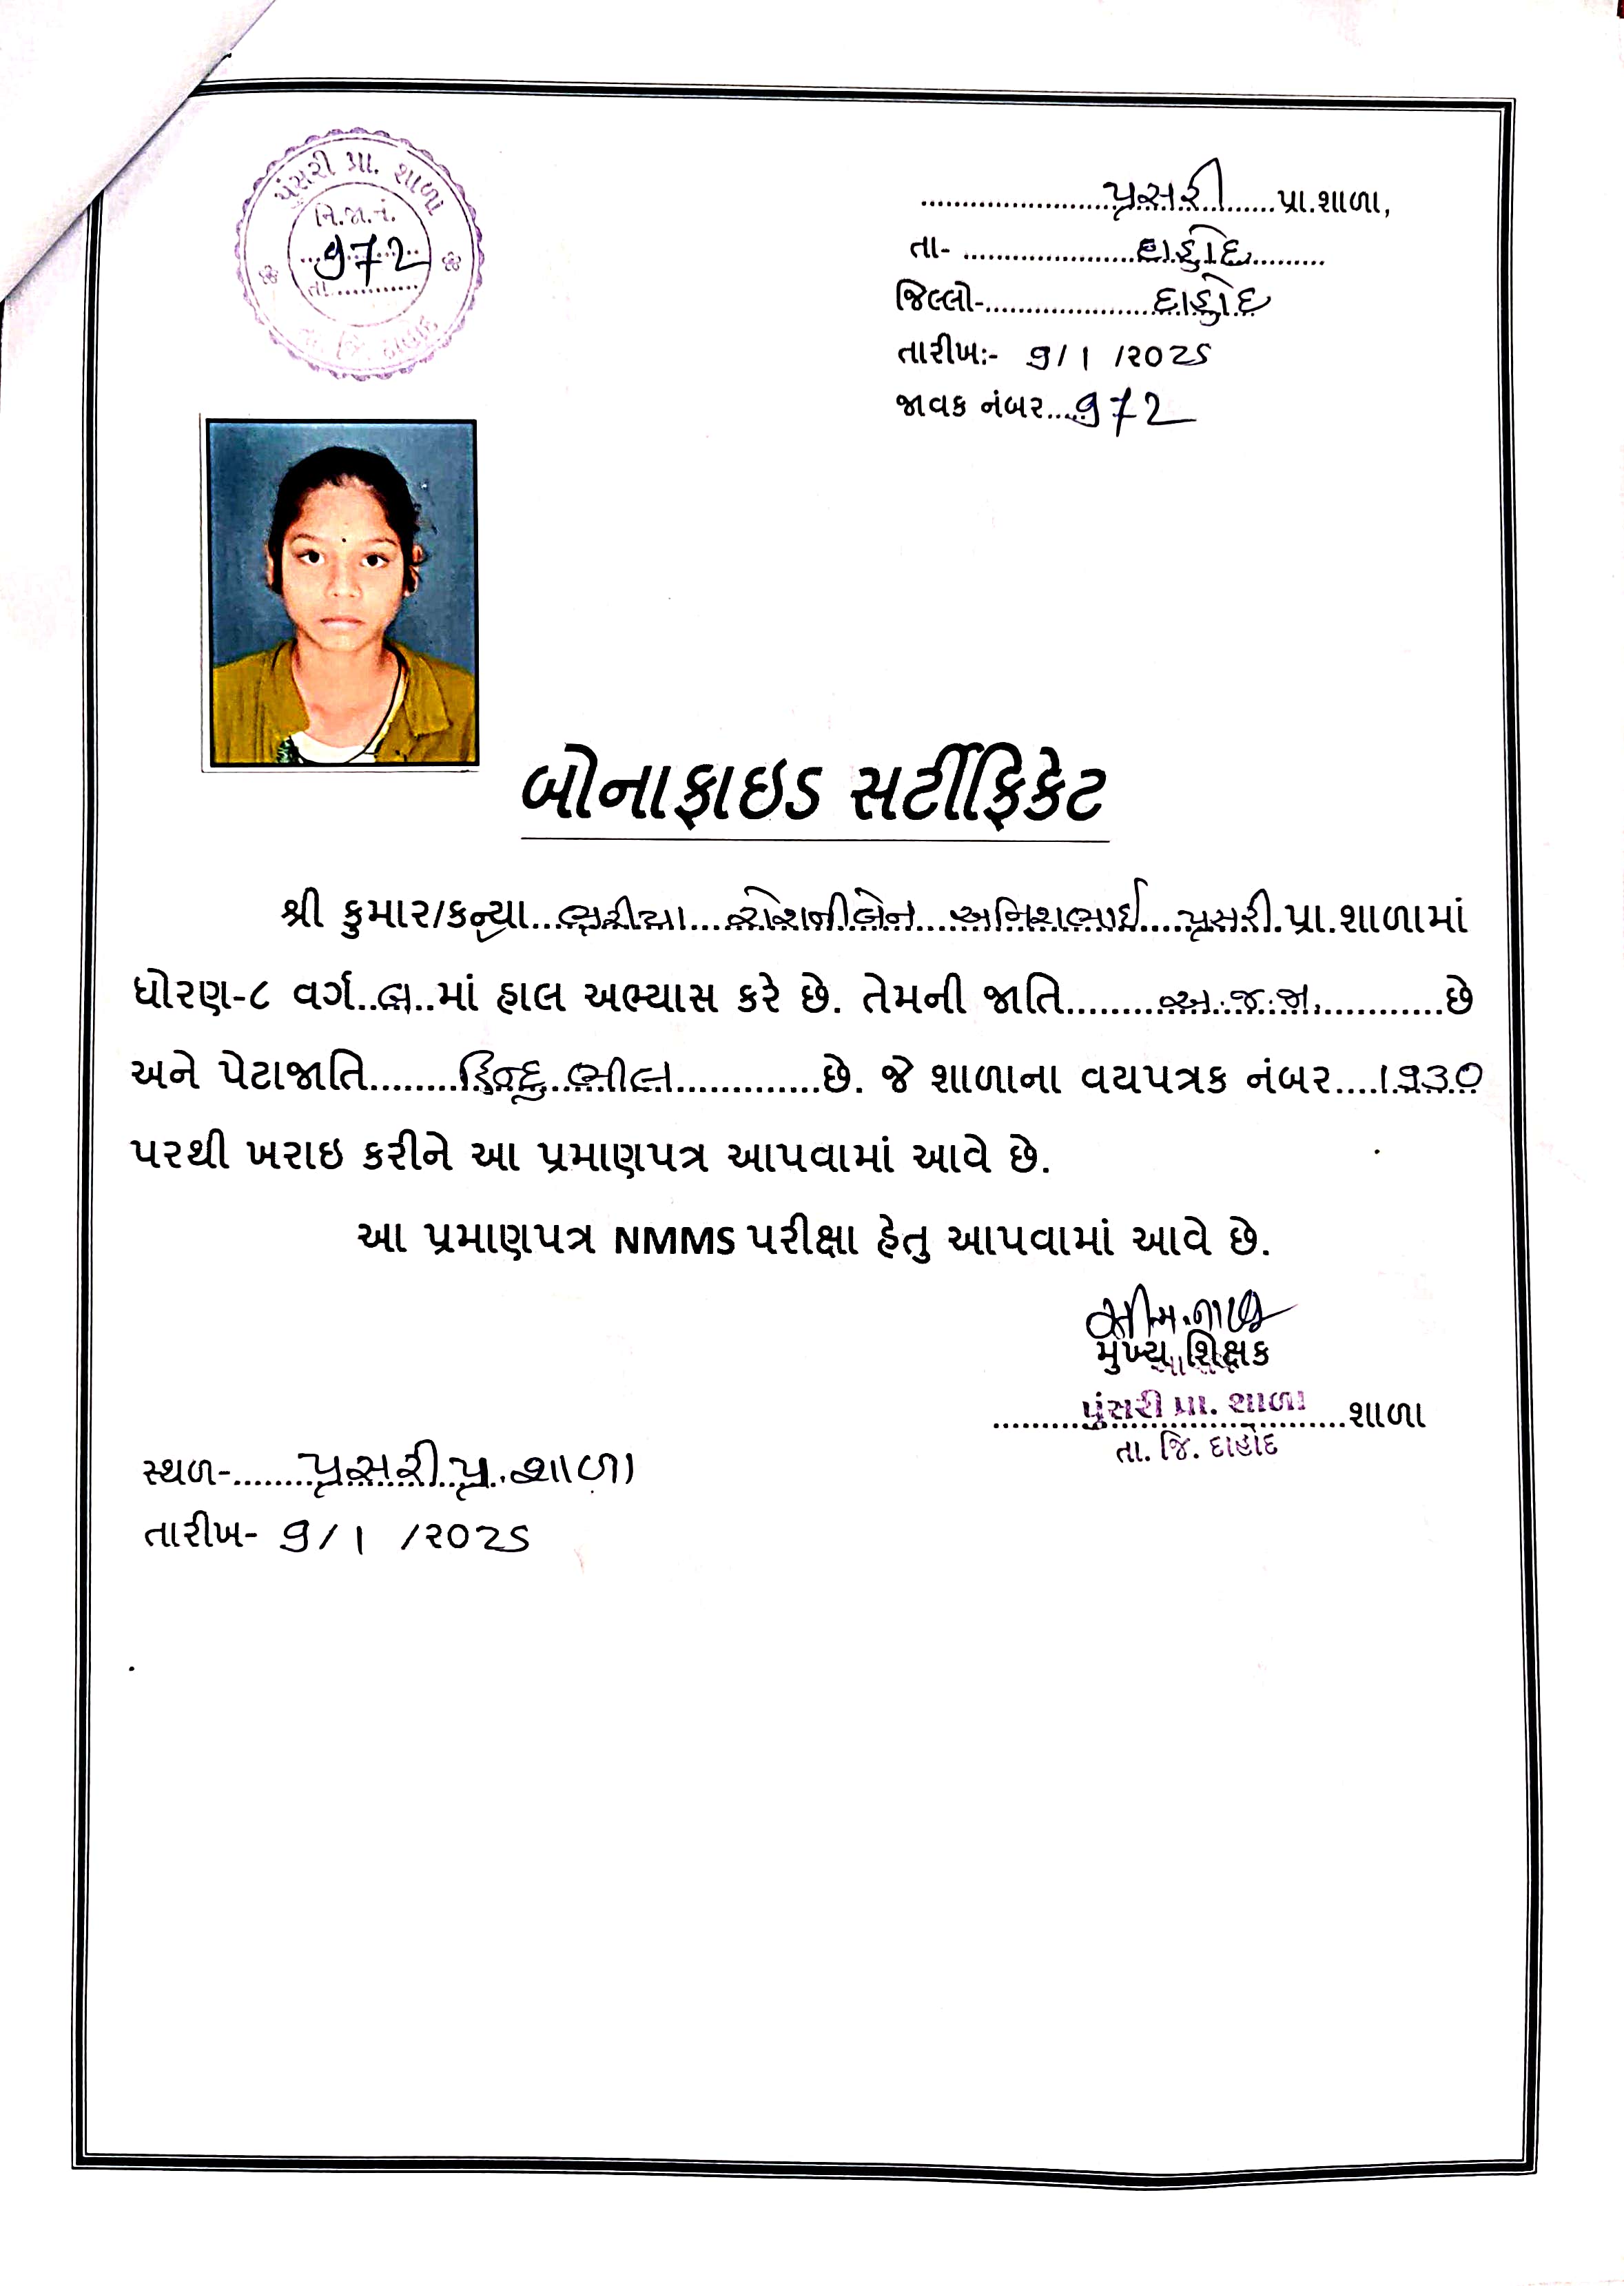 પુંસરી પ્રા. શાળા
નિ.જા.નં.
૧72
તા...........
જિ. દાહોદ
પુસરી પ્રા.શાળા,
તા- દાહોદ
જિલ્લો- દાહોદ
તારીખઃ- ૭/1 /૨૦૨5
જાવક નંબર....૧72
બોનાફાઇડ સર્ટીફિકેટ
શ્રી કુમાર/કન્યા ભુરીયા રોશનીબેન અનિશભાઈ પુસરી પ્રા.શાળામાં
ધોરણ-૮ વર્ગ બ માં હાલ અભ્યાસ કરે છે. તેમની જાતિ અ.જ.જા. છે
અને પેટાજાતિ હિન્દુ ભીલ છે. જે શાળાના વયપત્રક નંબર
પરથી ખરાઇ કરીને આ પ્રમાણપત્ર આપવામાં આવે છે.
આ પ્રમાણપત્ર NMMS પરીક્ષા હેતુ આપવામાં આવે છે.
મુખ્ય શિક્ષક
પુંસરી પ્રા. શાળા શાળા
તા. જિ. દાહોદ
સ્થળ- પુસરી પ્રા. શાળા
તારીખ- ૭/1 /૨૦૨5